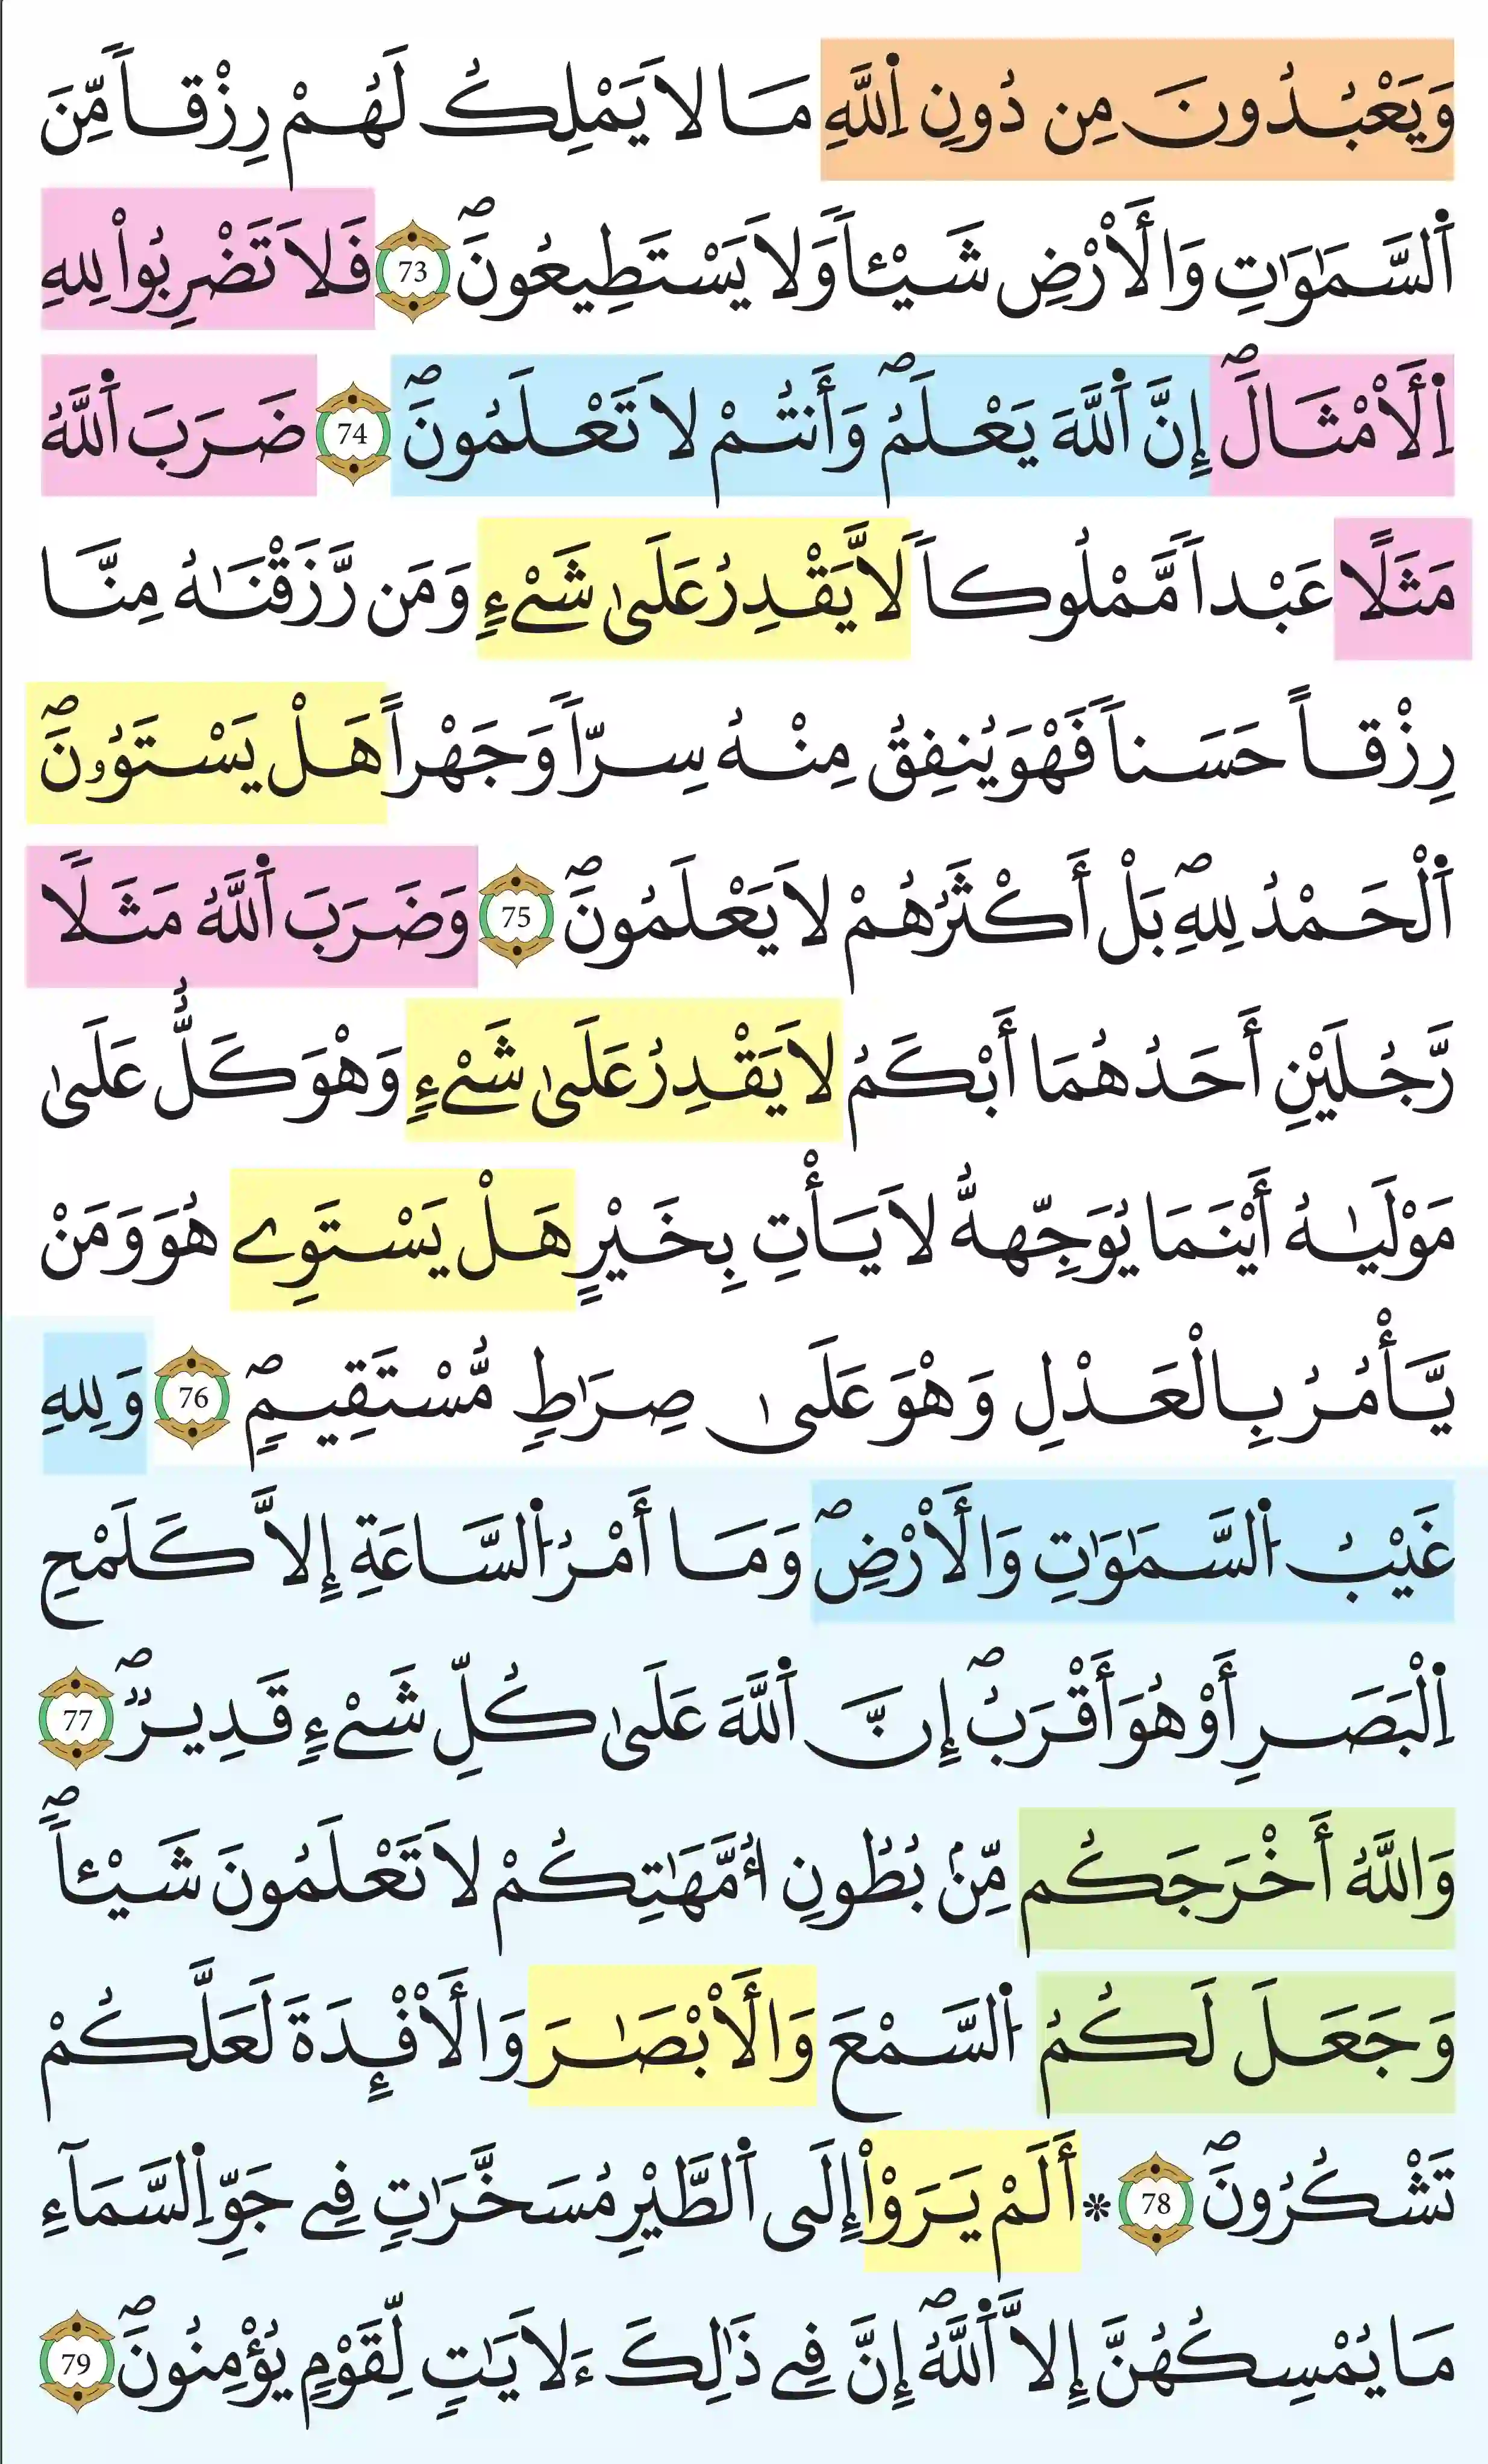 وَيَعْبُدُونَ مِن دُونِ اِ۬للَّهِ مَا لَا يَمْلِكُ لَهُمْ رِزْقاٗ مِّنَ
اَ۬لسَّمَٰوَٰتِ وَالَارْضِ شَيْـٔاٗ وَلَا يَسْتَطِيعُونَۖ 73 فَلَا تَضْرِبُواْ لِلهِ
اِ۬لَامْثَالَۖ إِنَّ اَ۬للَّهَ يَعْلَمُۖ وَأَنتُمْ لَا تَعْلَمُونَۖ 74 ضَرَبَ اَ۬للَّهُ
مَثَلًا عَبْداٗ مَّمْلُوكاٗ لَّا يَقْدِرُ عَلَىٰ شَےْءٖ وَمَن رَّزَقْنَٰهُ مِنَّا
رِزْقاً حَسَناٗ فَهْوَ يُنفِقُ مِنْهُ سِرّاٗ وَجَهْراً هَلْ يَسْتَوُۥنَۖ
اَ۬لْحَمْدُ لِلهِۖ بَلْ أَكْثَرُهُمْ لَا يَعْلَمُونَۖ 75 وَضَرَبَ اَ۬للَّهُ مَثَلًا
رَّجُلَيْنِ أَحَدُهُمَا أَبْكَمُ لَا يَقْدِرُ عَلَىٰ شَےْءٖ وَهْوَ كَلٌّ عَلَىٰ
مَوْلَيٰهُ أَيْنَمَا يُوَجِّههُّ لَا يَأْتِ بِخَيْرٍ هَلْ يَسْتَوِے هُوَ وَمَنْ
يَّأْمُرُ بِالْعَدْلِ وَهْوَ عَلَىٰ صِرَٰطٖ مُّسْتَقِيمٖۖ 76 وَلِلهِ
غَيْبُ اُ۬لسَّمَٰوَٰتِ وَالَارْضِۖ وَمَا أَمْرُ اُ۬لسَّاعَةِ إِلَّا كَلَمْحِ
اِ۬لْبَصَرِ أَوْ هُوَ أَقْرَبُۖ إِنَّ اَ۬للَّهَ عَلَىٰ كُلِّ شَےْءٖ قَدِيرٞۖ 77
وَاللَّهُ أَخْرَجَكُم مِّنۢ بُطُونِ أُمَّهَٰتِكُمْ لَا تَعْلَمُونَ شَيْـٔاٗۖ
وَجَعَلَ لَكُمُ اُ۬لسَّمْعَ وَالَابْصَٰرَ وَالَافْـِٕدَةَ لَعَلَّكُمْ
تَشْكُرُونَۖ 78 * أَلَمْ يَرَوْاْ إِلَى اَ۬لطَّيْرِ مُسَخَّرَٰتٖ فِے جَوِّ اِ۬لسَّمَآءِ
مَا يُمْسِكُهُنَّ إِلَّا اَ۬للَّهُۖ إِنَّ فِے ذَٰلِكَ ءَلَايَٰتٖ لِّقَوْمٖ يُؤْمِنُونَۖ 79